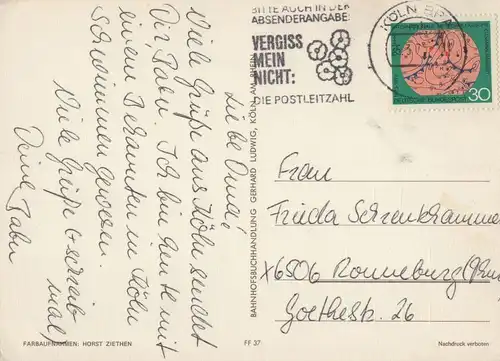 Liebe Oma!
Viele Grüße aus Köln sendet
Dir, Gabu. Ich bin heute mit
einem Bekannten in Köln
schwimmen gewesen.
Viele Grüße + schreib
mal,
Deine Gabu
BITTE AUCH IN DER
ABSENDERANGABE:
VERGISS
MEIN
NICHT:
DIE POSTLEITZAHL
KÖLN
DEUTSCHE BUNDESPOST
30
BAHNHOFSBUCHHANDLUNG GERHARD LUDWIG, KÖLN AM RHEIN
Frau
Frieda
6506 Ronneburg
Goethestr. 26
FARBAUFNAHMEN: HORST ZIETHEN
FF 37
Nachdruck verboten